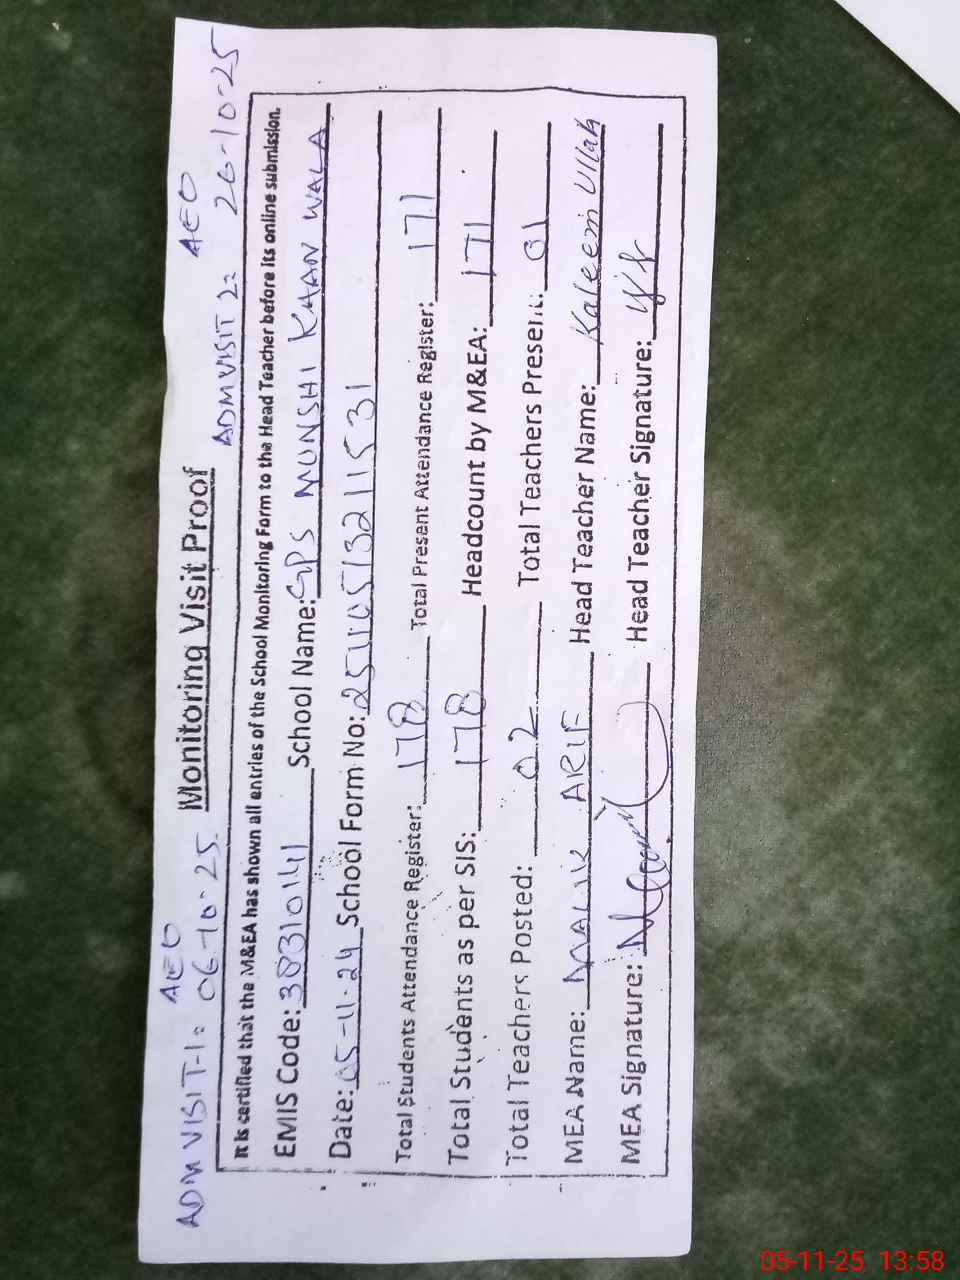 ADM VISIT-1: 06-10-25. AEO
Monitoring Visit Proof
ADM VISIT 2: 26-10-25 AEO
It is certified that the M&EA has shown all entries of the School Monitoring Form to the Head Teacher before its online submission.
EMIS Code: 38310141 School Name: GPS MUNSHI KAAN WALA
Date: 05-11-24 School Form No: 251105132111531
Total Students Attendance Register: 178 Total Present Attendance Register: 171
Total Students as per SIS: 178 Headcount by M&EA: 171
Total Teachers Posted: 02 Total Teachers Present: 01
MEA Name: MALIK ARIF Head Teacher Name: Kaleem Ullah
MEA Signature: Head Teacher Signature:
05-11-25 13:58